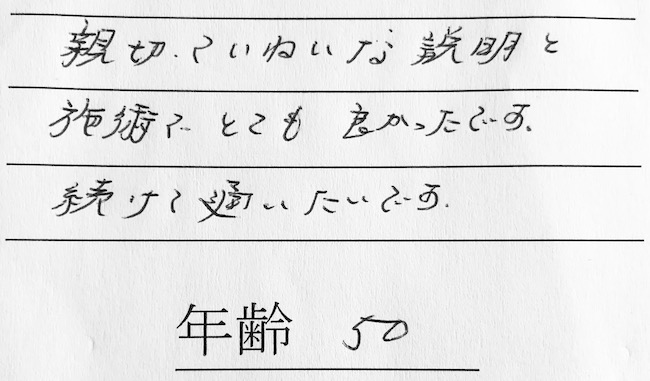 親切、ていねいな説明と
施術で とても 良かったです。
続けて通いたいです。
年齢 50